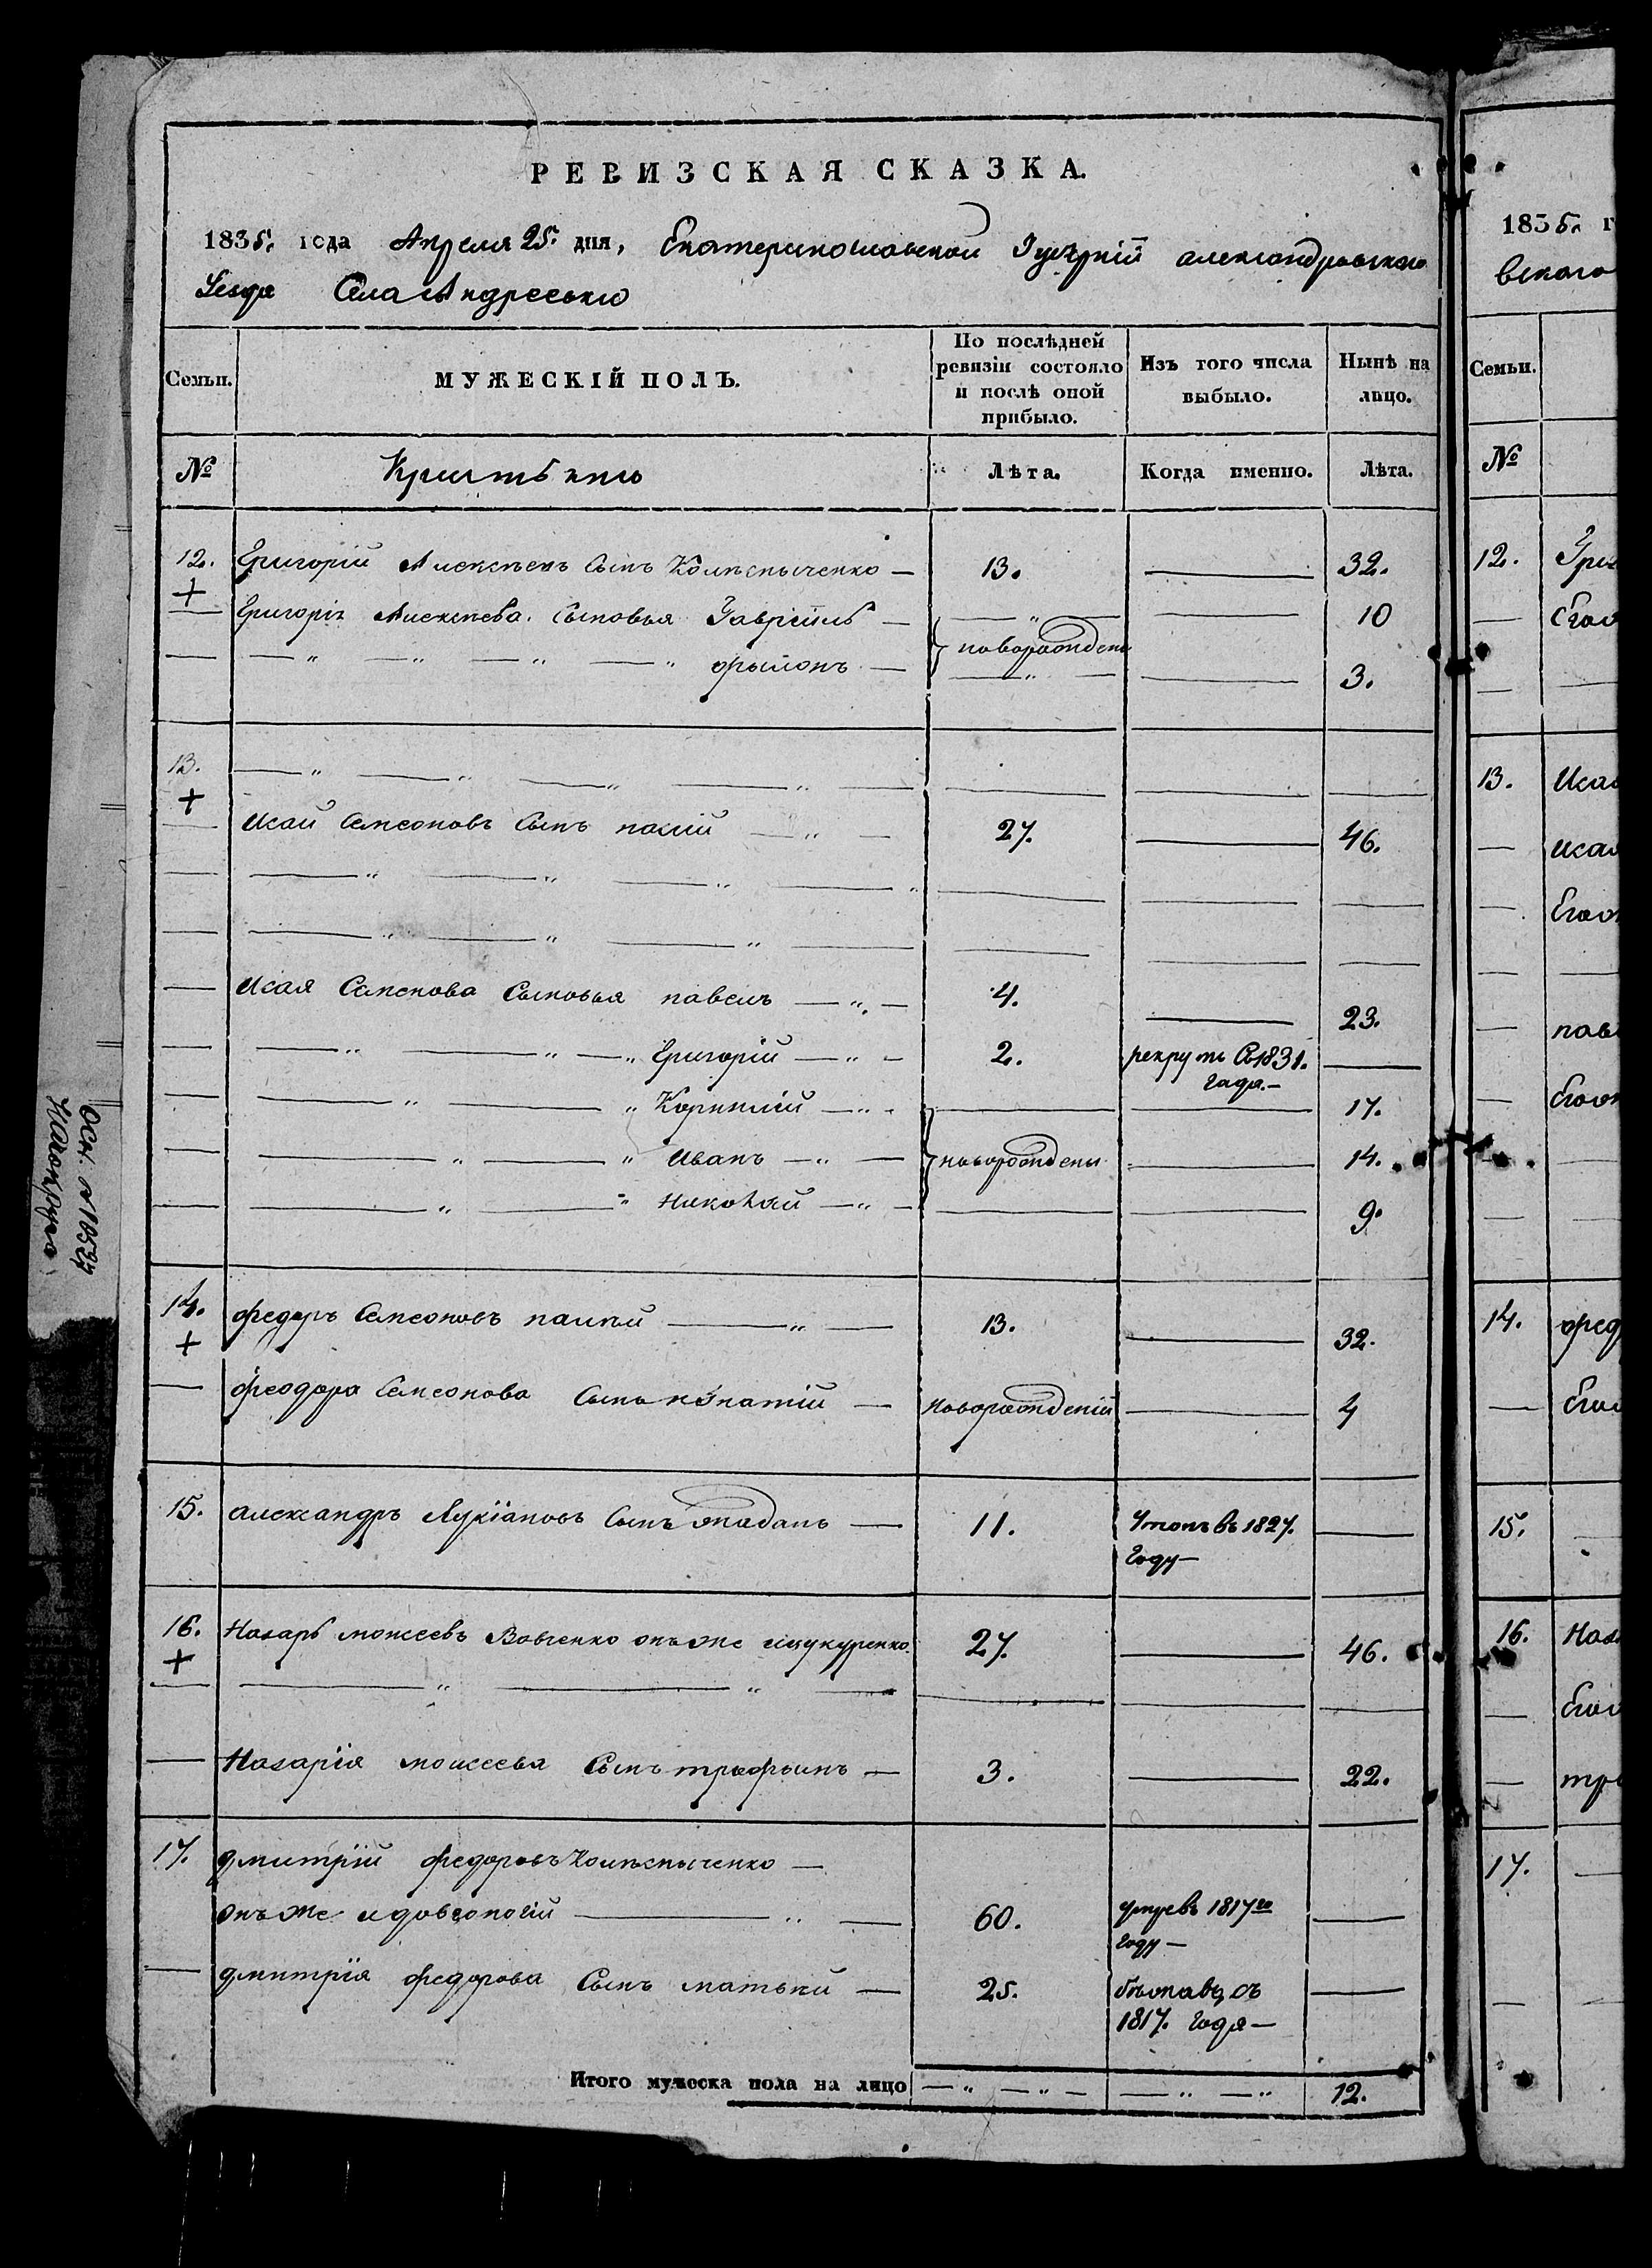 РЕВИЗСКАЯ СКАЗКА.
1835. года Апреля 25. дня, Екатеринославской Губернiи александровскаго
Уезда Села Андреевки
Семьи.
МУЖЕСКIЙ ПОЛЪ.
По послѣдней ревизiи состояло и послѣ оной прибыло.
Изъ того числа выбыло.
Нынѣ на лицо.
№
Лѣта.
Когда именно.
Лѣта.
12. Григорiй Алексеевъ Сынъ — 13. — 32.
Григорiя Алексеева Сыновья Гаврiилъ — 10
новорождены
— " — " — " — " филипъ — 3.
13. — " — " — " — " —
Исай Семеоновъ Сынъ палiй — " — 27. — 46.
— " — " — " — "
— " — " — " —
Исая Семенова Сыновья павелъ — " — 4. — 23.
— " — " — " Григорiй — " — 2. рекрутъ Съ 1831. года. —
— " — " Корнилiй — " — 17.
— " — " Иванъ — " — новорождены — 14.
— " — " Николай — " — 9.
14. федоръ Семеоновъ палiй — " — 13. — 32.
феодора Семеонова Сынъ — новорожденiй — 4
15. александръ Лукiановъ Сынъ — 11. Утопъ въ 1827. Году —
16. Назаръ моисеевъ Вовченко онъ же — 27. — 46.
— " — " —
Назарiя моисеева Сынъ трофимъ — 3. — 22.
17. дмитрiй федоровъ —
онъ же и довгоногiй — " — 60. умре въ 1817го Году —
дмитрiя федорова Сынъ матвей — 25. бежавъ съ 1817. Года —
Итого мужеска пола на лицо — " — " — — " — " 12.
1835. г
вскаго
Семьи.
№
12. Гри
Его
13. Иса
исая
Его
пав
Его
14. фед
Его
15.
16. Наз
Его
тро
17.